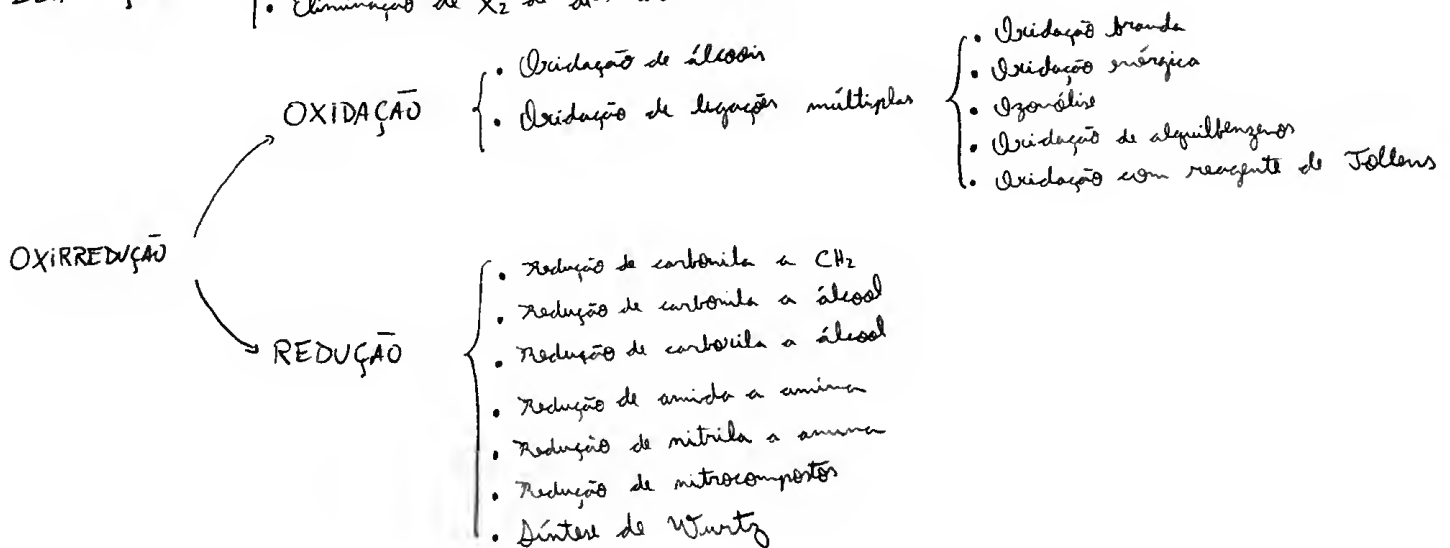 • Eliminação de X2 de
OXIDAÇÃO
• Oxidação de álcoois
• Oxidação de ligações múltiplas
• Oxidação branda
• Oxidação enérgica
• Ozonólise
• Oxidação de alquilbenzenos
• Oxidação com reagente de Tollens
OXIRREDUÇÃO
REDUÇÃO
• Redução de carbonila a CH2
• Redução de carbonila a álcool
• Redução de carboxila a álcool
• Redução de amida a amina
• Redução de nitrila a amina
• Redução de nitrocompostos
• Síntese de Wurtz